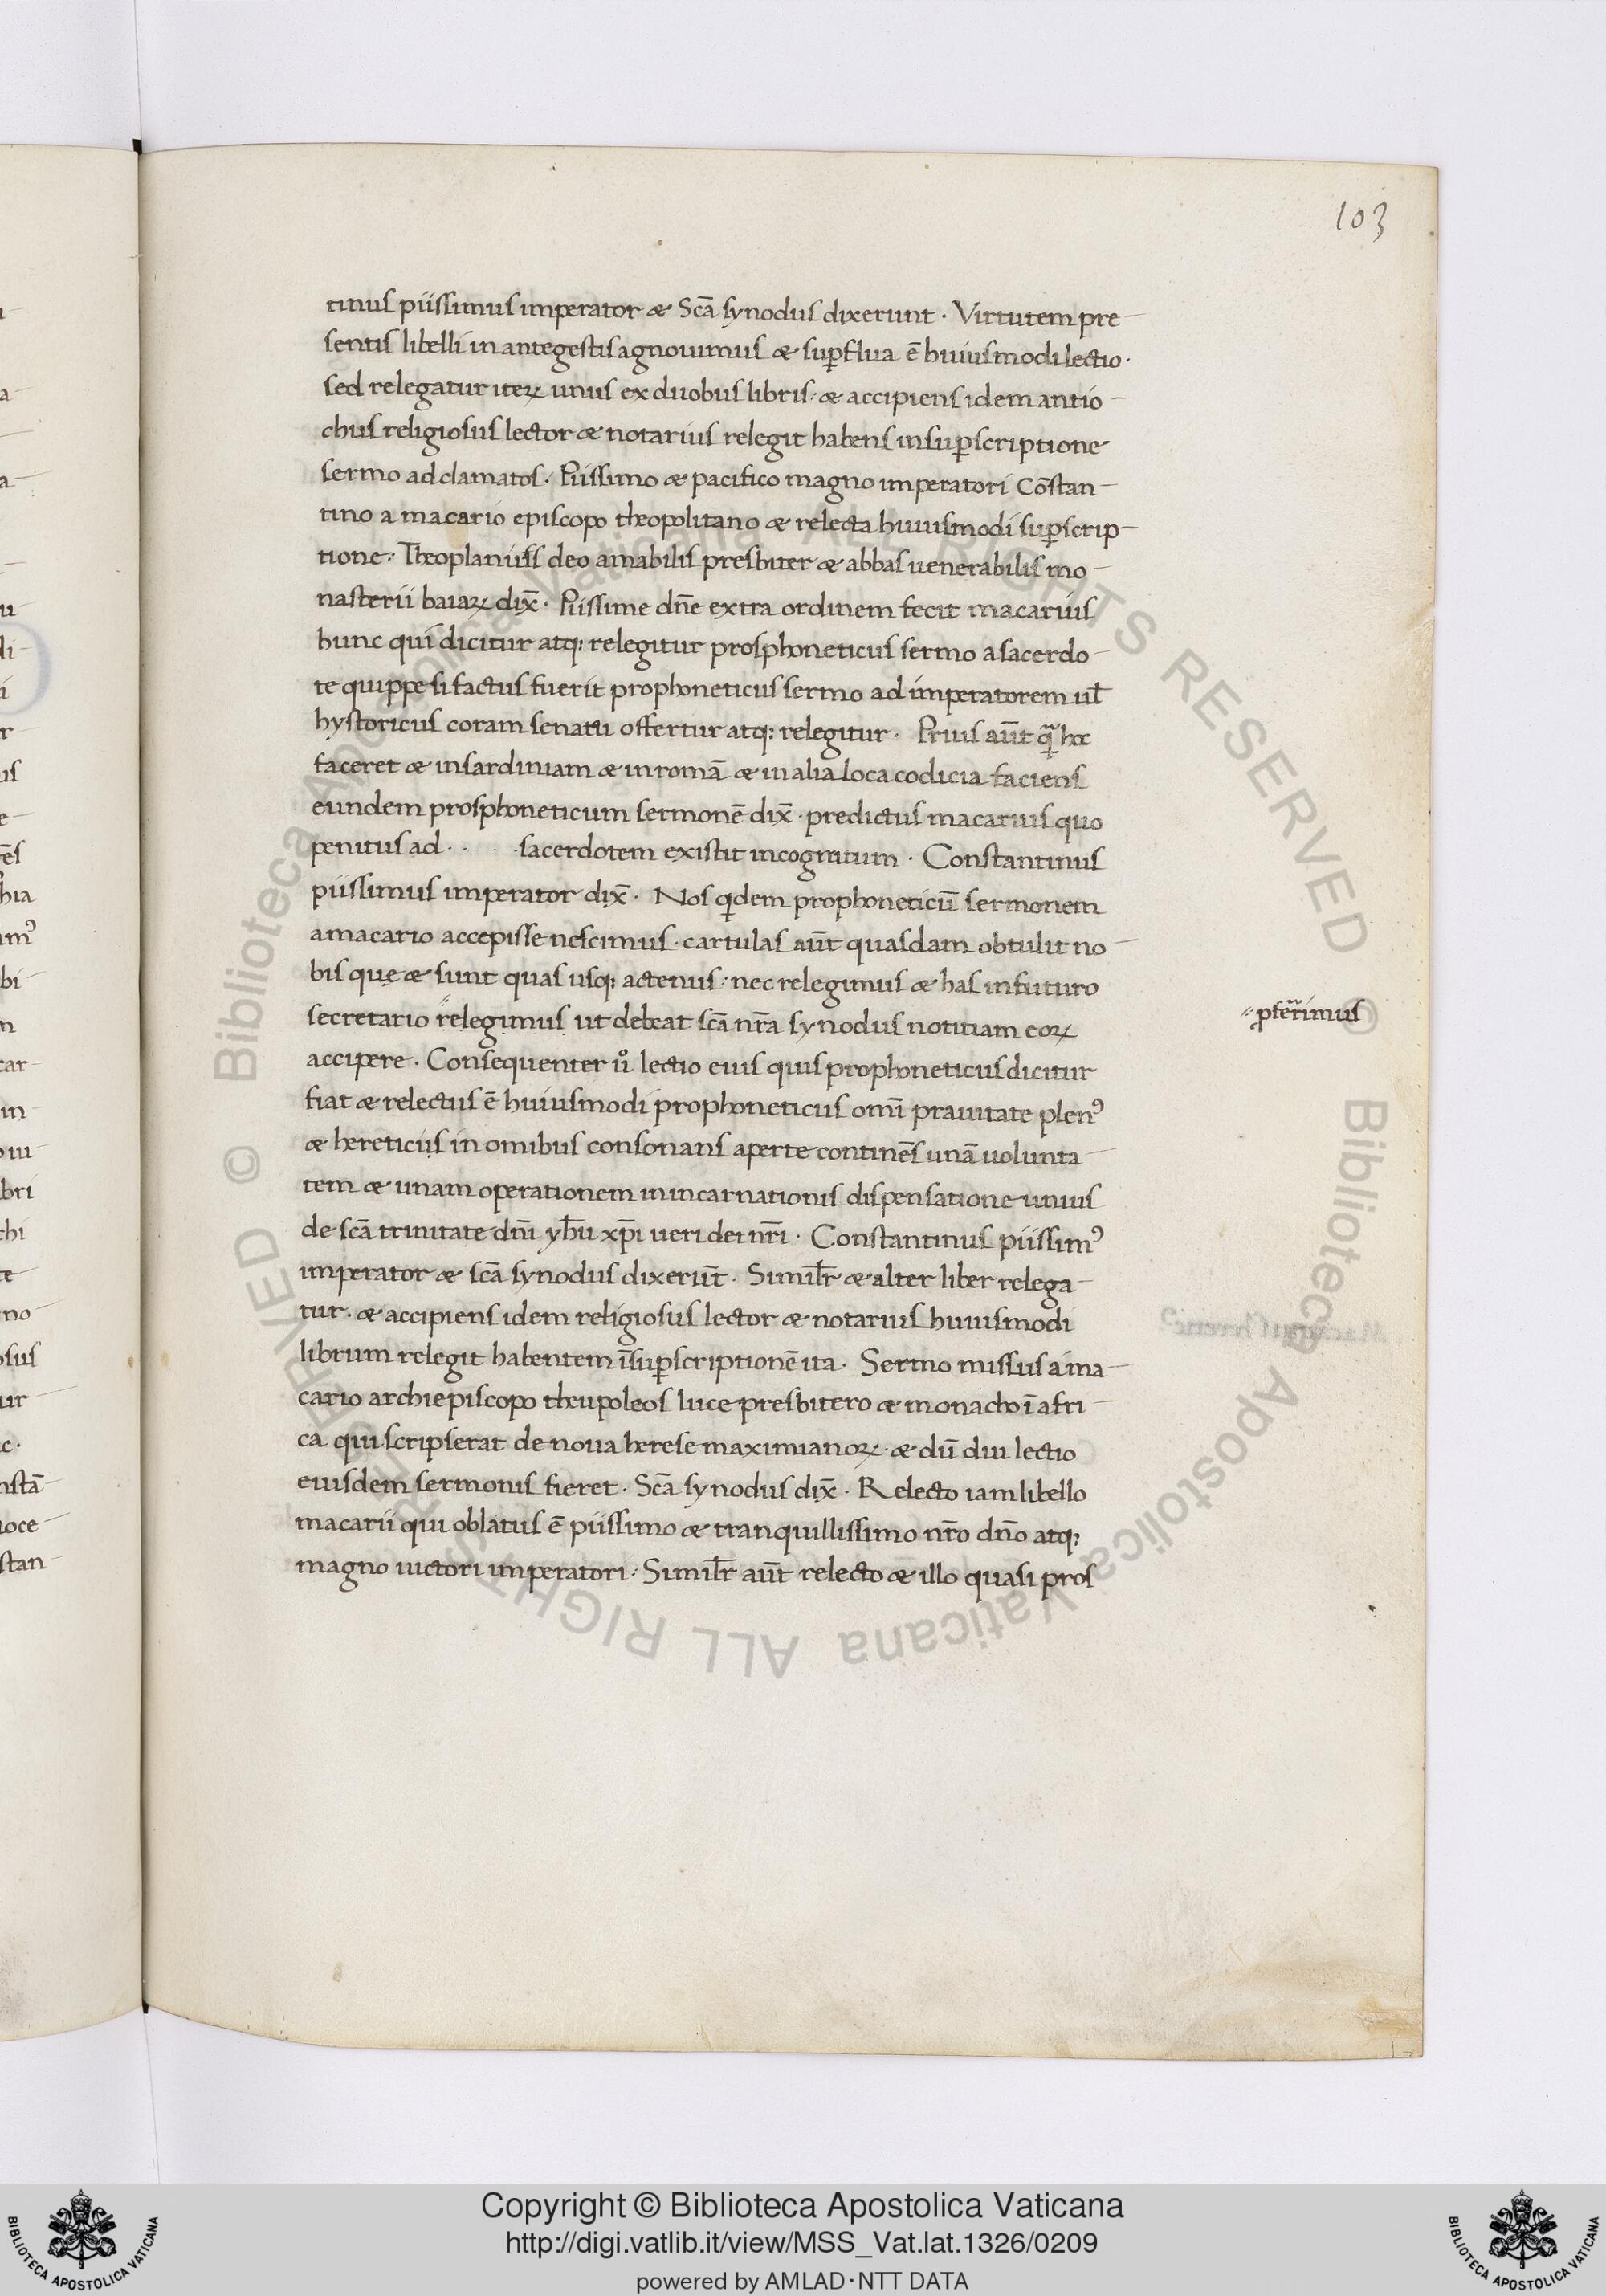 103
tinus piissimus imperator & Scā synodus dixerunt · Virtutem pre
sentis libelli in antegestis agnouimus & suꝑflua ē huiusmodi lectio ·
sed relegatur iteꝝ unus ex duobus libris · & accipiens idem antio
chus religiosus lector & notarius relegit habens in suꝑscriptione
sermo ad clamatos · Piissimo & pacifico magno imperatori Cōstan
tino a macario episcopo theopolitano & relecta huiusmodi suꝑscrip
tione · Theoplanius deo amabilis presbiter & abbas uenerabilis mo
nasterii baiaꝝ dix̄ · Piissime dn̄e extra ordinem fecit macarius
hunc qui dicitur atq: relegitur prosphoneticus sermo a sacerdo
te quippe si factus fuerit prophoneticus sermo ad imperatorem ul̄
hystoricus coram senatu offertur atq: relegitur · Prius aūt quā hoc
faceret & in sardiniam & in romā & in alia loca codicia faciens
eundem prosphoneticum sermonē dix̄ · predictus macarius quo
penitus ad · · · · sacerdotem existit incognitum · Constantinus
piissimus imperator dix̄ · Nos qͥdem prophoneticū sermonem
a macario accepisse nescimus · cartulas aūt quasdam obtulit no
bis quę & sunt quas usq: actenus · nec relegimus & has in futuro
secretario relegimus ut debeat scā nr̄a synodus notitiam eoꝝ
ꝓferimus
accipere · Consequenter uͦ lectio eius quis prophoneticus dicitur
fiat & relectus ē huiusmodi prophoneticus om̄i prauitate plenꝰ
& hereticus in omibus consonans aperte continēs unā uolunta
tem & unam operationem in incarnationis dispensatione unius
de scā trinitate dn̄i yh̄u xp̄i ueri dei nr̄i · Constantinus piissimꝰ
imperator & scā synodus dixerūt · Simil̄r & alter liber relega
tur · & accipiens idem religiosus lector & notarius huiusmodi
librum relegit habentem ī suꝑscriptionē ita · Sermo missus a ma
cario archiepiscopo theupoleos luce presbitero & monacho ī afri
ca qui scripserat de noua herese maximianoꝝ · & dū diu lectio
eiusdem sermonis fieret · Scā synodus dix̄ · Relecto iam libello
macarii qui oblatus ē piissimo & tranquillissimo nr̄o dn̄o atq:
magno uictori imperatori · Simil̄r aūt relecto & illo quasi pros
Copyright © Biblioteca Apostolica Vaticana
http://digi.vatlib.it/view/MSS_Vat.lat.1326/0209
powered by AMLAD·NTT DATA